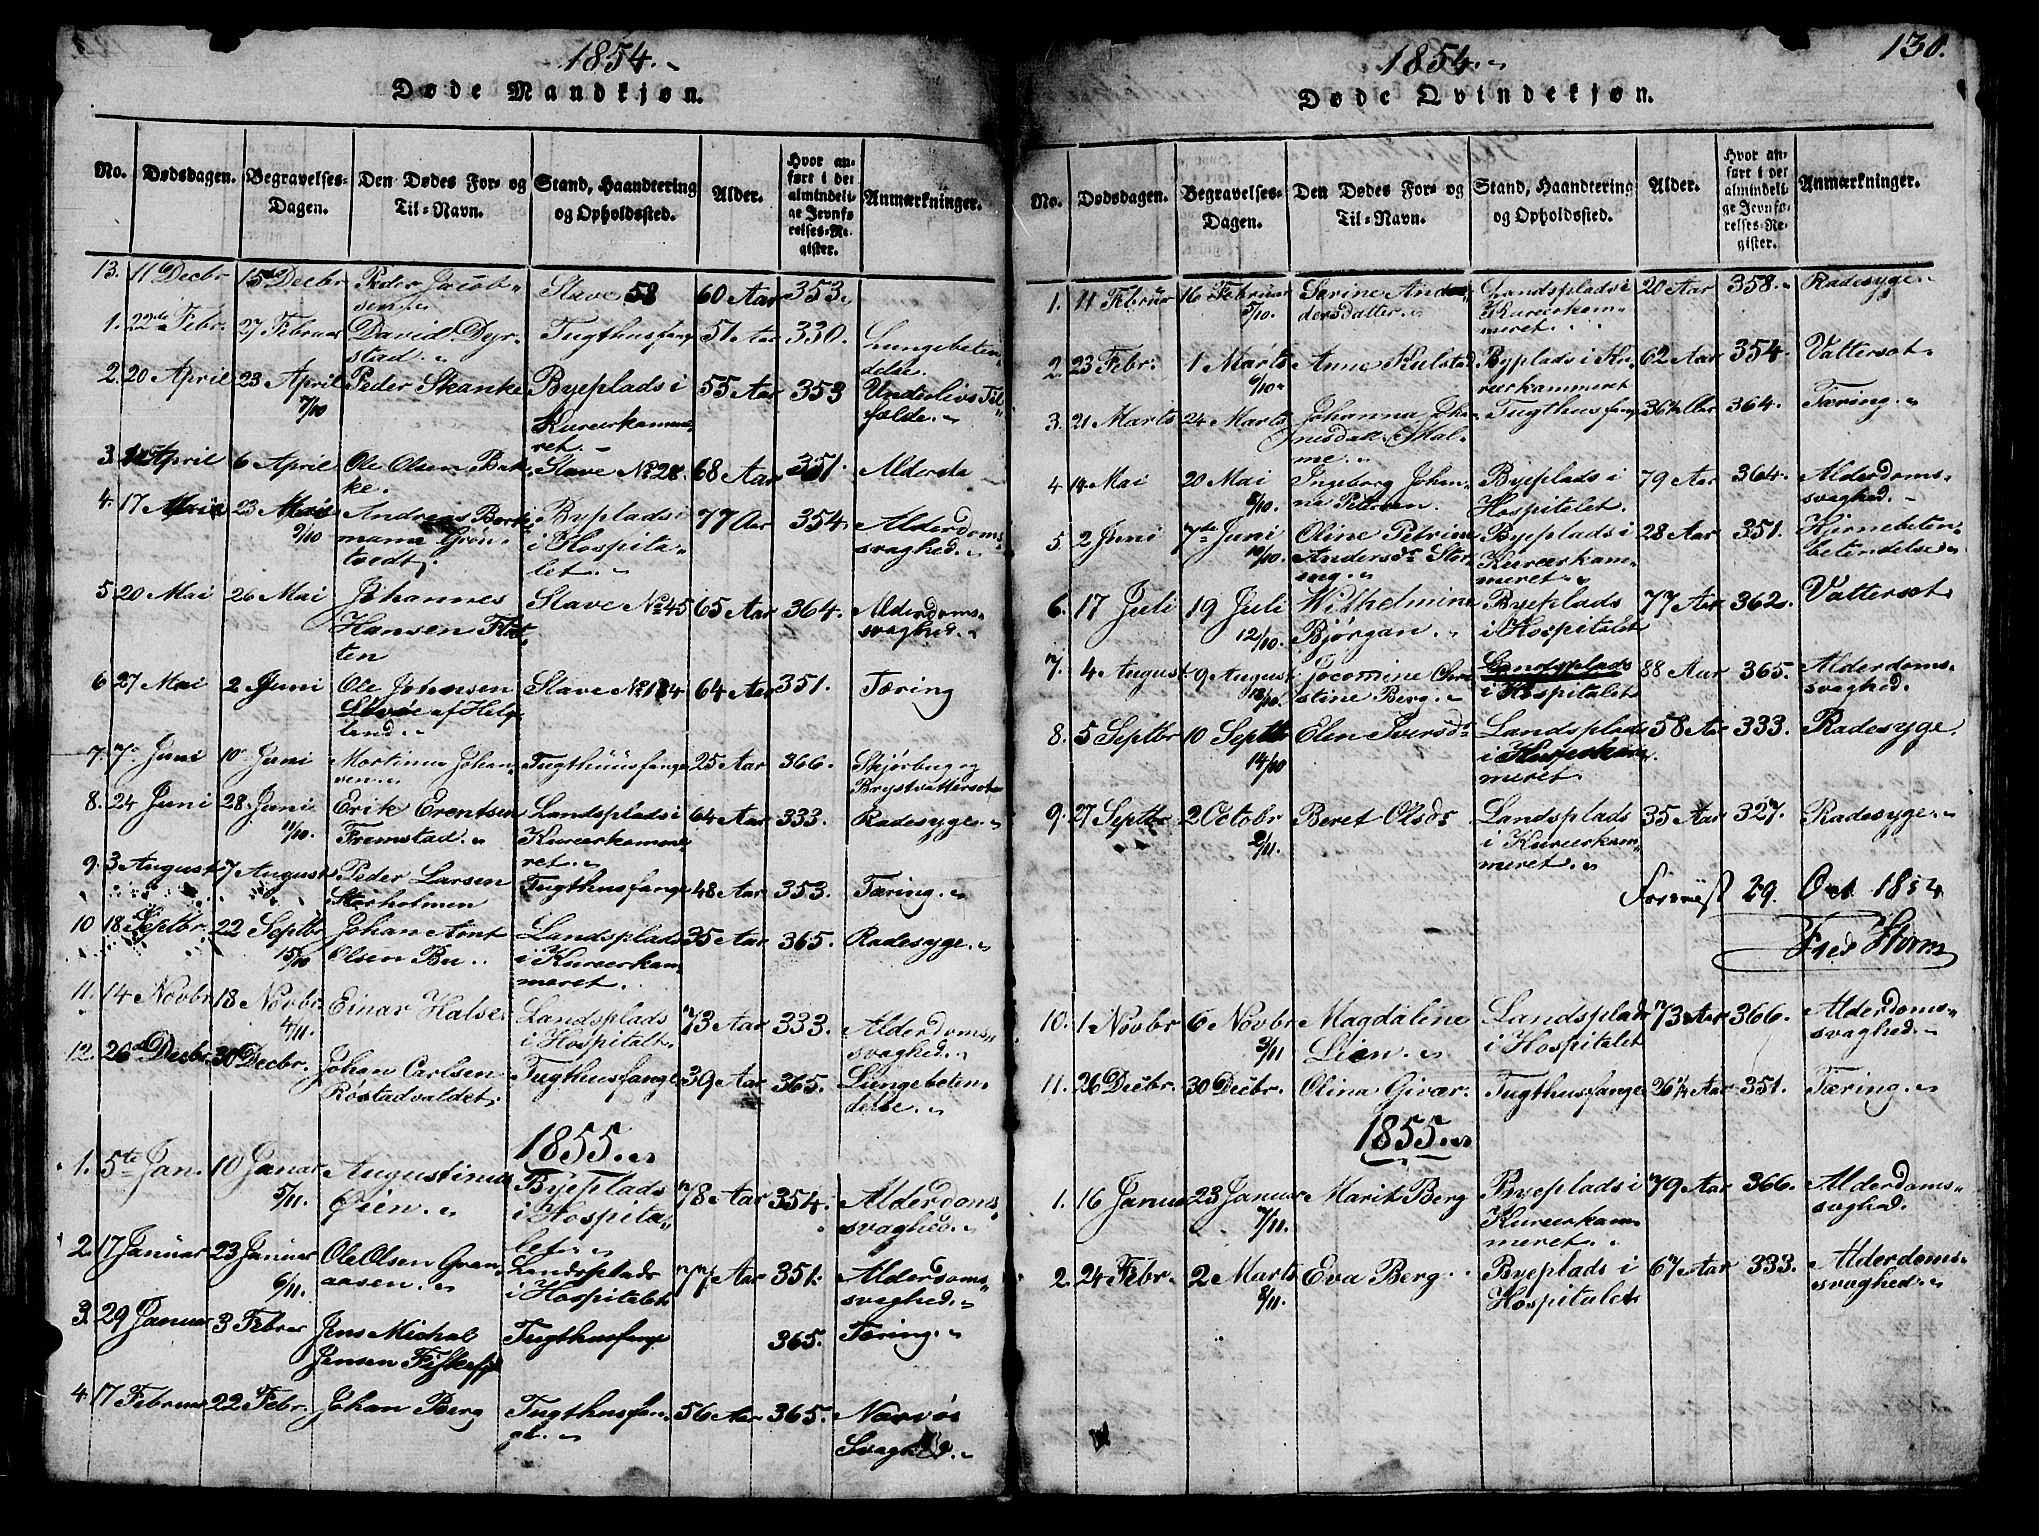 1854.
Døde Mandkjøn.
No. Dødsdagen. Begravelses-Dagen. Den Dødes For- og Til-Navn. Stand, Haandtering og Opholdssted. Alder. Hvor anført i det almindelige Jevnførelses-Register. Anmærkninger.
13. 11 Decbr 15de Decbr Peder Jacobsen Slave 58 60 Aar 353.
1. 22de Febr. 27 Februar David Dyrstad. Tugthusfange 51 Aar 330. Lungebetendelse.
2. 20 April 23 April 7/10 Peder Skanke Byeplads i Kurerkammeret. 55 Aar 353 Underlivs Tilfælde.
3. April 6 April Ole Olsen Bakke. Slave No 28 68 Aar 351. Aldersta
4. 17 Mai 23 Mai 9/10 Andreas Borkmann Grøntvedt. Byplads i Hospitalet. 77 Aar 354. Alderdomssvaghed.
5. 20 Mai 26 Mai Johannes Hansen Flatten Slave No 45 65 Aar 364. Alderdomssvaghed.
6. 27 Mai 2 Juni Ole Johnsen af Helgeland. Slave No 184 64 Aar 351. Tæring
7. 7 Juni 10 Juni Martinus Johansen. Tugthuusfange 25 Aar 366. Skjørbug og Brystvattersot
8. 24 Juni 28 Juni 11/10. Erik Erentsen Fremstad. Landsplads i Kurerkammeret. 64 Aar 333. Radesyge.
9. 3 August 7 August Peder Larsen Storholmen Tugthusfange 48 Aar 353. Tæring.
10 18 Septbr. 22 Septbr 15/10 Johan Arnt Olsen Bu. Landsplads i Kurerkammeret. 35 Aar 365. Radesyge.
11. 14 Novbr 18 Novbr 4/11. Einar Halse Landsplads i Hospitalt. 73 Aar 333. Alderdomssvaghed.
12. 26de Decbr. 30 Decbr. Johan Carlsen Røstadvaldet. Tugthusfange 39 Aar 365. Lungebetendelse.
1855.
1. 5te Jan. 10 Januar 5/11. Augustinus Øien. Byeplads i Hospitalet. 78 Aar 354. Alderdomssvaghed.
2. 17 Januar 23 Januar 6/11. Ole Olsen Granaasen. Landsplads i Hospitalet 77 Aar 351. Alderdomssvaghed.
3. 29 Januar 3 Febrar Jens Michal Jensen Tugthusfange 365. Tæring.
4. 17 Februar 22 Febr. Johan Berg Tugthusfange. 56 Aar 365. Nervøs Svaghed.
1854. 130.
Døde Qvindekjøn.
No. Dødsdagen. Begravelses-Dagen. Den Dødes For- og Til-Navn. Stand, Haandtering og Opholdssted. Alder. Hvor anført i det almindelige Jevnførelses-Register. Anmærkninger.
1. 11 Februr 16 Februar 5/10. Sarine Andersdatter. Landsplads i Kurerkammeret. 20 Aar 358. Radesyge.
2. 23 Febr. 1 Marts 6/10. Anne Kulstad Byplads i Kurerkammeret 62 Aar 354. Vattersot.
3. 21 Marts 24 Marts Johanna Johannesdatr. Malme. Tugthusfange 36 Aar 364. Tæring.
4 14 Mai 20 Mai 8/10. Ingeborg Johanna Petersen. Byeplads i Hospitalet. 79 Aar 364. Alderdomssvaghed.
5 2 Juni 7de Juni 10/10. Oline Petrine Andersdr Byeplads i Kurerkammeret. 28 Aar 351. Hirnebetenbetendelse
6. 17 Juli 19 Juli 12/10. Wilhelmine Bjørgan. Byeplads i Hospitalet 77 Aar 362. Vattersot.
7. 4 August 9 August 13/10. Jocomine Christine Berg. Landsplads i Hospitalet 88 Aar 365. Alderdomssvaghed.
8. 5 Septbr 10 Septbr 14/10 Elen Iversdr Landsplads i Kurerkammeret. 58 Aar 333. Radesyge.
9. 27 Septbr 2 Octobr 2/11. Beret Olsdr Landsplads i Kurerkammeret. 35 Aar 327. Radesyge.
29. Oct 1854
Fred Storm
10. 1 Novbr 6 Novbr 3/11 Magdaline Lien. Landsplads i Hospitalet 73 Aar 366. Alderdomssvaghed.
11. 26 Decbr. 30 Decbr. Olina Givær. Tugthusfange 26 1/4 Aar 351. Tæring.
1855.
1. 16 Januar 23 Januar 7/11. Marit Berg Byeplads i Kurerkammeret. 79 Aar 366. Alderdomssvaghed.
2. 24 Febr. 2 Marts 8/11. Eva Berg. Byeplads i Hospitalet 67 Aar 333. Alderdomssvaghed.